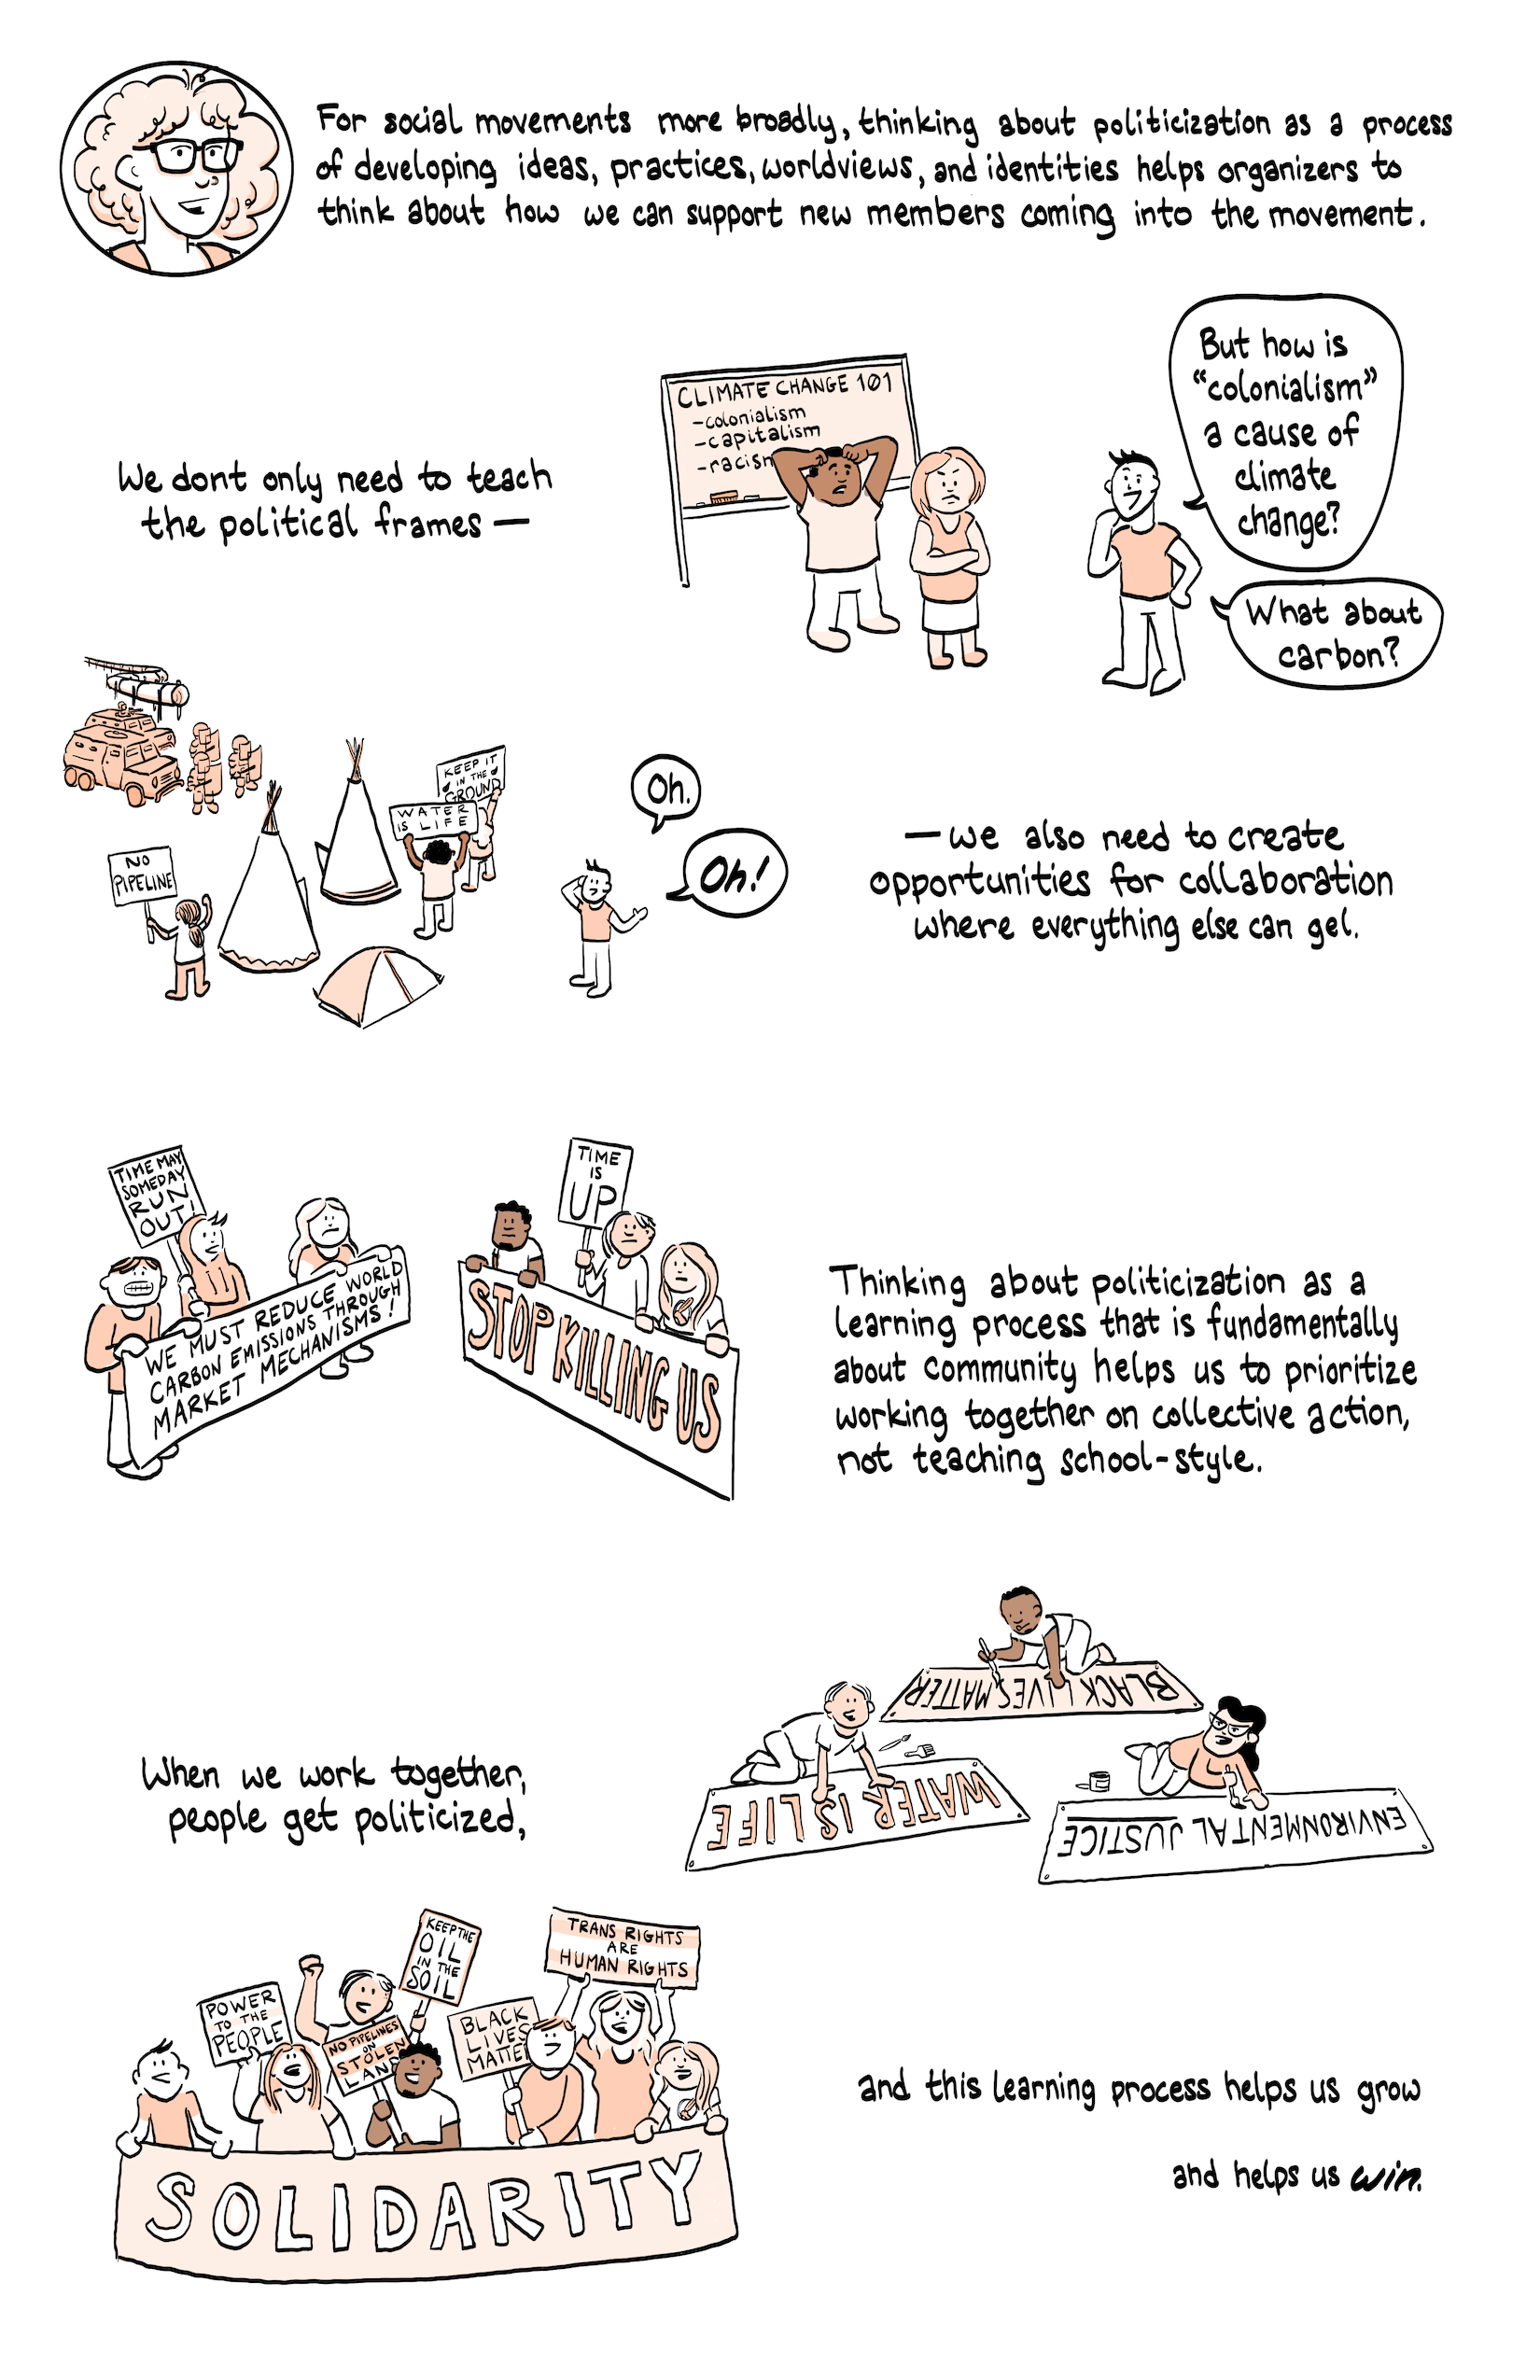 For social movements more broadly, thinking about politicization as a process
of developing ideas, practices, worldviews, and identities helps organizers to
think about how we can support new members coming into the movement.
We dont only need to teach
the political frames —
CLIMATE CHANGE 101
- colonialism
- capitalism
- racism
But how is
"colonialism"
a cause of
climate
change?
What about
carbon?
NO
PIPELINE
WATER
IS LIFE
KEEP IT
IN THE
GROUND
Oh.
Oh!
— we also need to create
opportunities for collaboration
where everything else can gel.
TIME MAY
SOMEDAY
RUN
OUT!
WE MUST REDUCE WORLD
CARBON EMISSIONS THROUGH
MARKET MECHANISMS!
TIME
IS
UP
STOP KILLING US
Thinking about politicization as a
learning process that is fundamentally
about community helps us to prioritize
working together on collective action,
not teaching school-style.
When we work together,
people get politicized,
BLACK LIVES MATTER
WATER IS LIFE
ENVIRONMENTAL JUSTICE
POWER
TO THE
PEOPLE
NO PIPELINES
ON
STOLEN
LAND
KEEP THE
OIL
IN THE
SOIL
BLACK
LIVES
MATTER
TRANS RIGHTS
ARE
HUMAN RIGHTS
SOLIDARITY
and this learning process helps us grow
and helps us win.